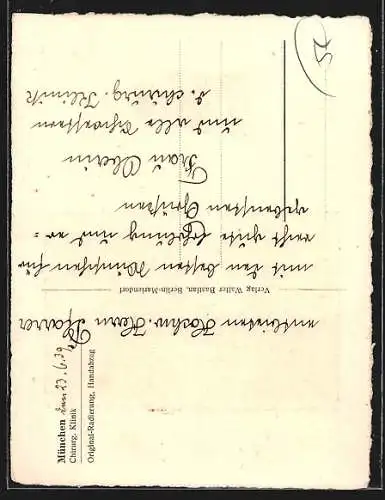 München den 23.6.39
Chirurg. Klinik
Original-Radierung, Handabzug
Verlag Walter Bastian, Berlin-Mariendorf
Hochw. Herrn Pfarrer
mit den besten Wünschen für
recht gute Erholung und er=
gebensten Grüßen
Frau Oberin
und alle Schwestern
d. chirurg. Klinik